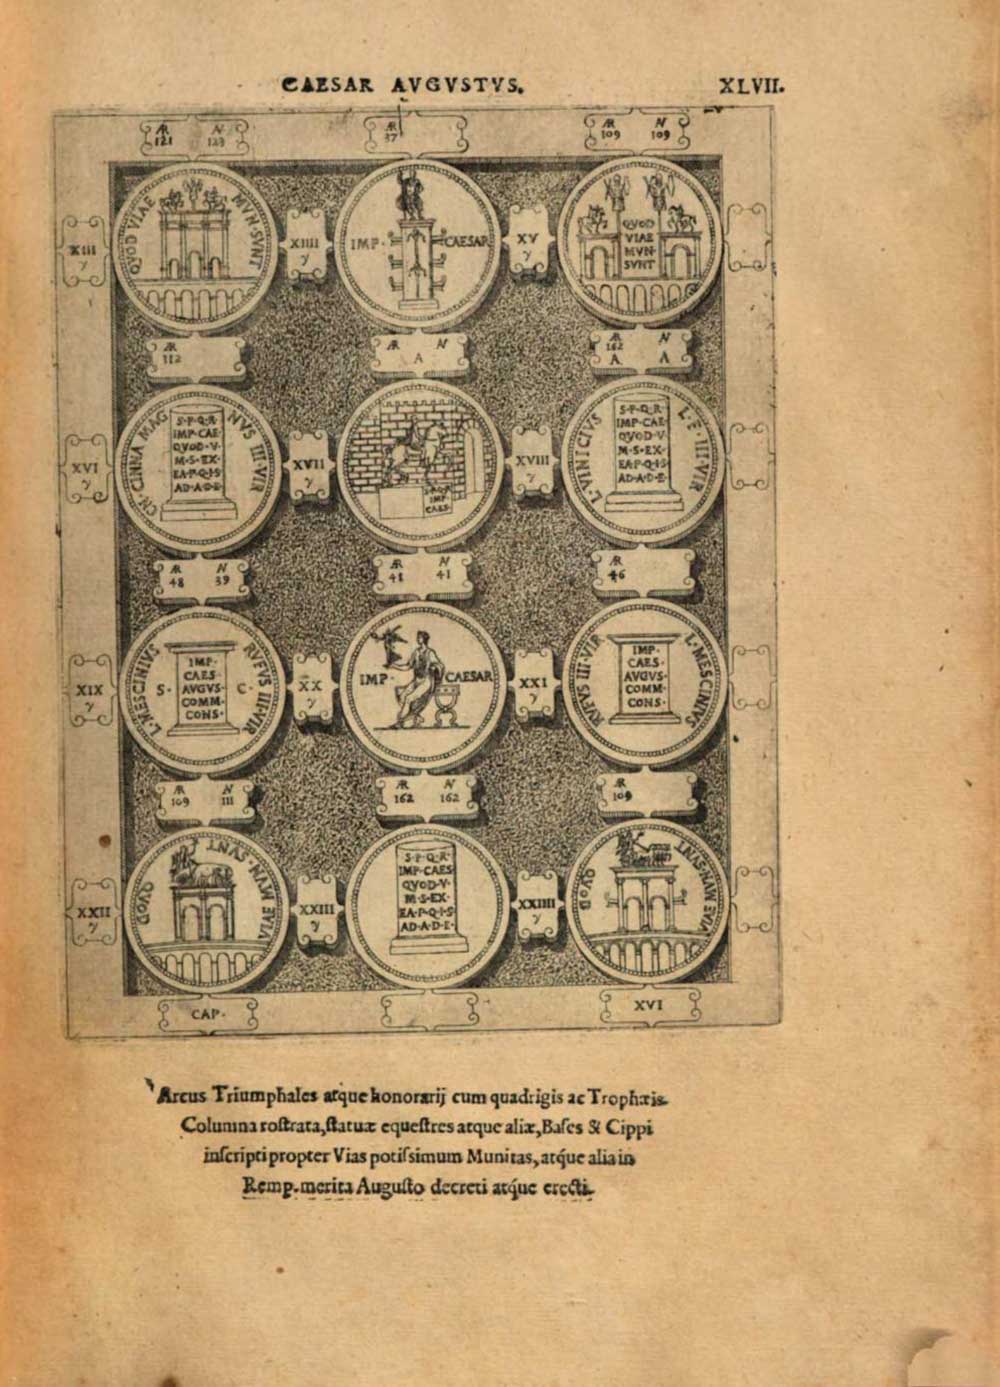 CAESAR AVGVSTVS. XLVII.
AR 121 N 123
AR 37
AR 109 N 109
XIII γ
QVOD VIAE MVN·SVNT
XIIII γ
IMP· CAESAR
XV γ
QVOD
VIAE
MVN·
SVNT
AR 112
AR N A
AR 162 A N A
XVI γ
CN·CINNA MAG NVS III·VIR
S·P·Q·R·
IMP·CAE·
QVOD·V·
M·S·EX·
EA·P·Q·I·S·
AD·A·D·E·
XVII γ
S·P·Q·R
IMP·
CAES·
XVIII γ
L·VINICIVS L·F·III·VIR
S·P·Q·R·
IMP·CAE·
QVOD·V·
M·S·EX·
EA·P·Q·I·S·
AD·A·D·E·
AR 48 N 39
AR 41 N 41
AR 46
XIX γ
L·MESCINIVS RVFVS III·VIR
S· C·
IMP·
CAES·
AVGVS·
COMM·
CONS·
XX γ
IMP· CAESAR
XXI γ
RVFVS III·VIR L·MESCINIVS
IMP·
CAES·
AVGVS·
COMM·
CONS·
AR 109 N 111
AR 162 N 162
AR 109
XXII γ
QVOD VIAE MVN·SVNT
XXIII γ
S·P·Q·R·
IMP·CAES
QVOD·V·
M·S·EX·
EA·P·Q·I·S·
AD·A·D·E·
XXIIII γ
QVOD VIAE MVN·SVNT
CAP·
XVI
Arcus Triumphales atque honorarij cum quadrigis ac Trophæis
Columna rostrata, statuæ equestres atque aliæ, Bases & Cippi
inscripti propter Vias potissimum Munitas, atq́ue alia in
Remp. merita Augusto decreti atq́ue erecti.